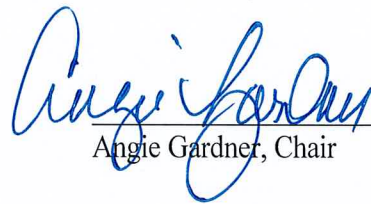 Angie Gardner
Angie Gardner, Chair